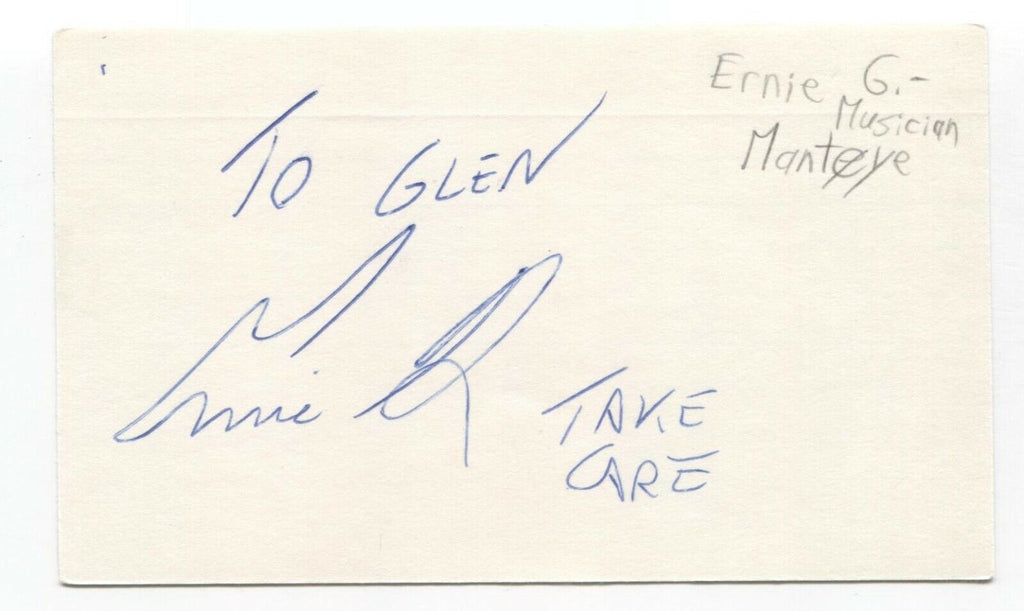 Ernie G.-
Musician
Manteye
TO GLEN
Ernie G
TAKE
CARE